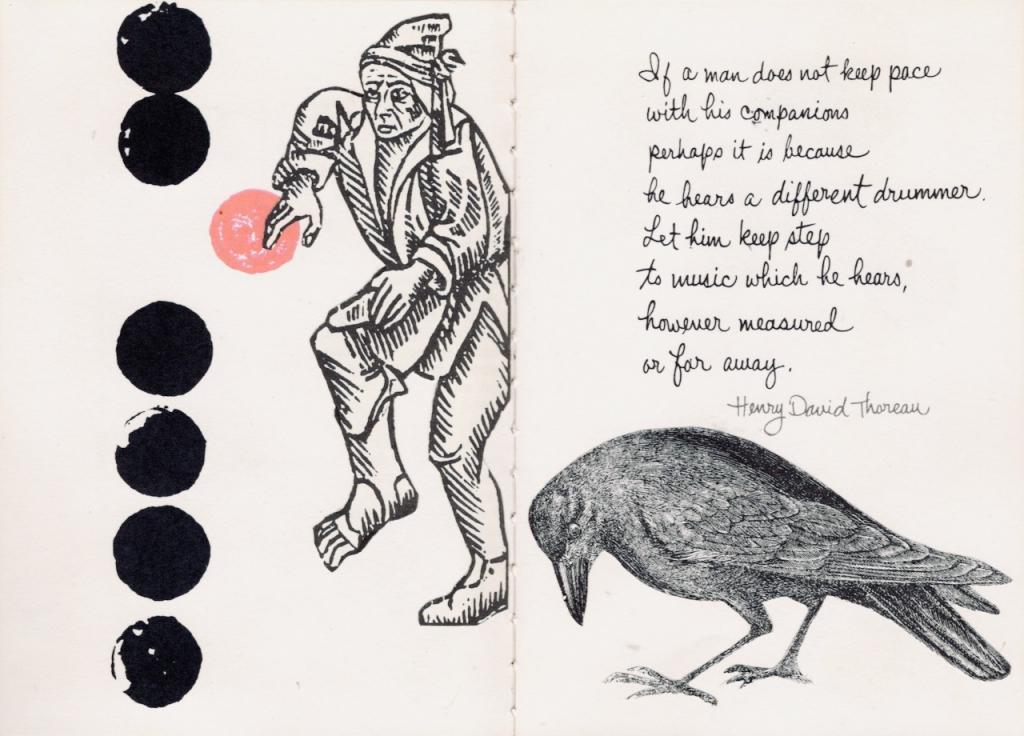 If a man does not keep pace
with his companions
perhaps it is because
he hears a different drummer.
Let him keep step
to music which he hears,
however measured
or far away.
Henry David Thoreau